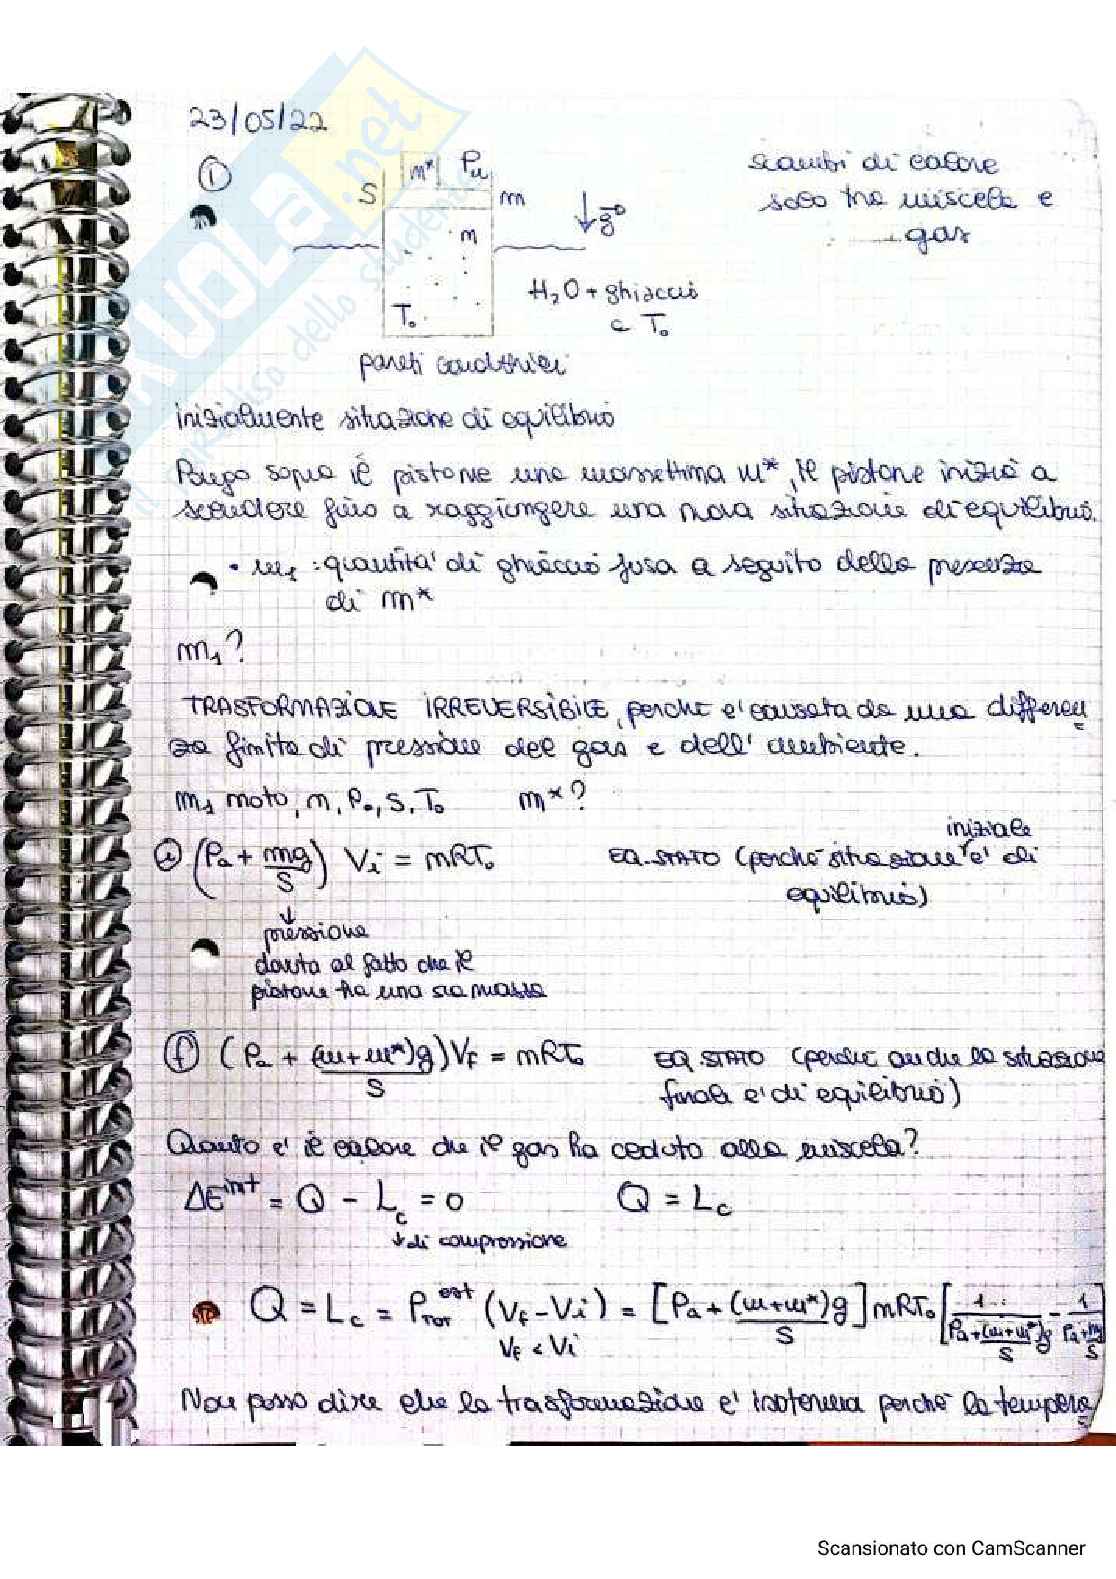 23/05/22
①
m* Pa
S
m
n
g
T₀
H₂O + ghiaccio
a T₀
pareti conduttrici
scambi di calore
solo tra miscela e
gas
inizialmente situazione di equilibrio
Pongo sopra il pistone una massettina m*, il pistone inizia a
scendere fino a raggiungere una nuova situazione di equilibrio.
• m₁ : quantita' di ghiaccio fusa a seguito della presenza
di m*
m₁?
TRASFORMAZIONE IRREVERSIBILE, perche e' causata da una differen
za finita di pressione del gas e dell'ambiente.
m₁ noto, n, P₀, S, T₀ m*?
ⓘ (Pa + mg/S) Vi = nRT₀ EQ. STATO (perche situazione iniziale e' di
equilibrio)
↓
pressione
dovuta al fatto che il
pistone ha una sua massa
ⓕ (Pa + (m+m*)g/S) Vf = nRT₀ EQ. STATO (perche anche la situazione
finale e' di equilibrio)
Quanto e' il calore che il gas ha ceduto alla miscela?
ΔE^int = Q - Lc = 0 Q = Lc
↳ di compressione
Q = Lc = P_TOT^est (Vf - Vi) = [Pa + (m+m*)g/S] nRT₀ [1/(Pa + (m+m*)g/S) - 1/(Pa + mg/S)]
Vf < Vi
Non posso dire che la trasformazione e' isoterma perche la tempera
Scansionato con CamScanner
SKUOLA.net
il paradiso dello studente